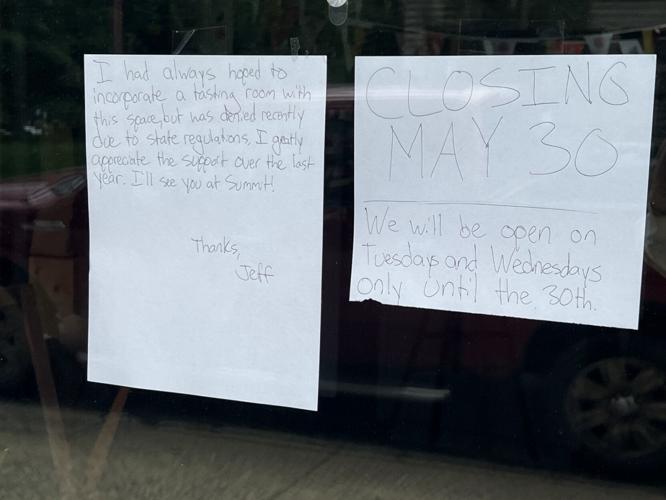 I had always hoped to
incorporate a tasting room with
this space, but was denied recently
due to state regulations. I greatly
appreciate the support over the last
year. I'll see you at Summit!
Thanks,
Jeff
CLOSING
MAY 30
We will be open on
Tuesdays and Wednesdays
only until the 30th.